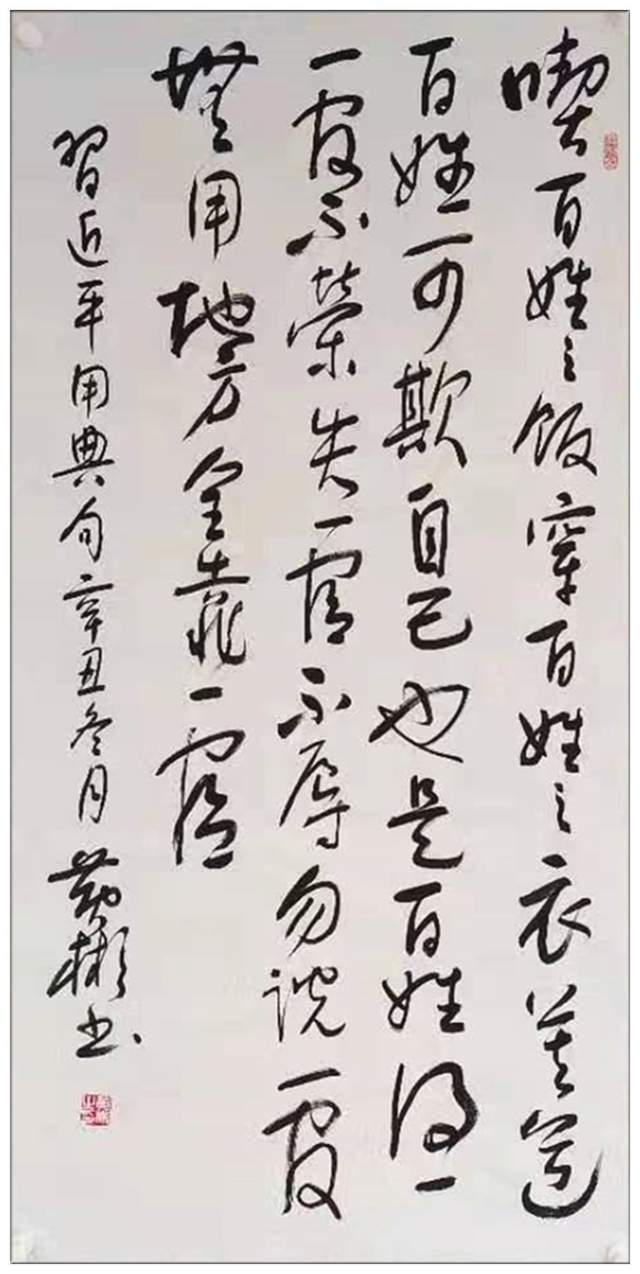 喫百姓之飯穿百姓之衣莫道
百姓可欺自己也是百姓得一
一官不榮失一官不辱勿説一官
無用地方全靠一官
習近平用典句辛丑冬月彬书